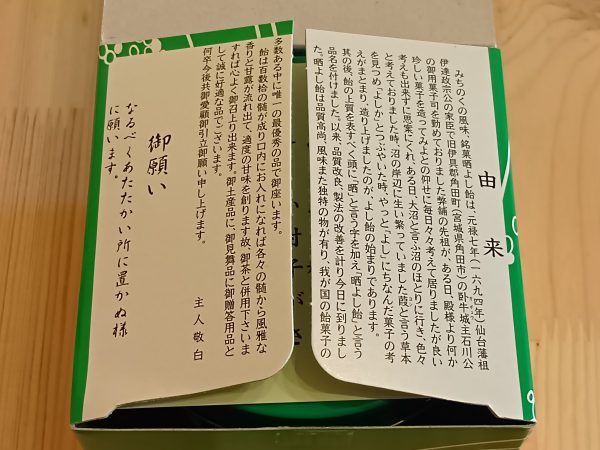 由来
みちのくの風味、銘菓晒よし飴は、元禄七年(一六九四年)仙台藩祖
伊達政宗公の家臣で旧伊具郡角田町(宮城県角田市)の臥牛城主石川公
の御用菓子司を勤めておりました弊舗の先祖が、ある日、殿様より何か
珍しい菓子を造ってみよとの仰せに毎日々々考えて居りましたが良い
考えも出来ずに思案にくれ、ある日、大沼と言ふ沼のほとりに行き、色々
と考えておりました時、沼の岸辺に生い繁っていました葭と言う草本
を見つめ「よしか」とつぶやいた時、やっと「よし」にちなんだ菓子の考
えがまとまり、造り上げましたのが、「よし飴」の始まりであります。
其の後、飴の上質を表すべく頭に「晒」と言う字を加え「晒よし飴」と言う
品名を付けました。以来、品質改良、製法の改善を計り今日に到りまし
た。晒よし飴は品質高尚、風味また独特の物が有り、我が国の飴菓子の
多数ある中に唯一の最優秀の品で御座います。
飴は百数拾の髄が成り口内にお入れになれば各々の髄から風雅な
香りと甘露が流れ出て、適度の甘味を創ります故、御茶と併用下さいま
すれば心よく御召上り出来ます。御土産品に、御見舞品に御贈答用品と
して誠に好適な品でございます。
何卒今後共御愛顧御引立御願い申し上げます。
主人敬白
御願い
なるべくあたたかい所に置かぬ様
に願います。